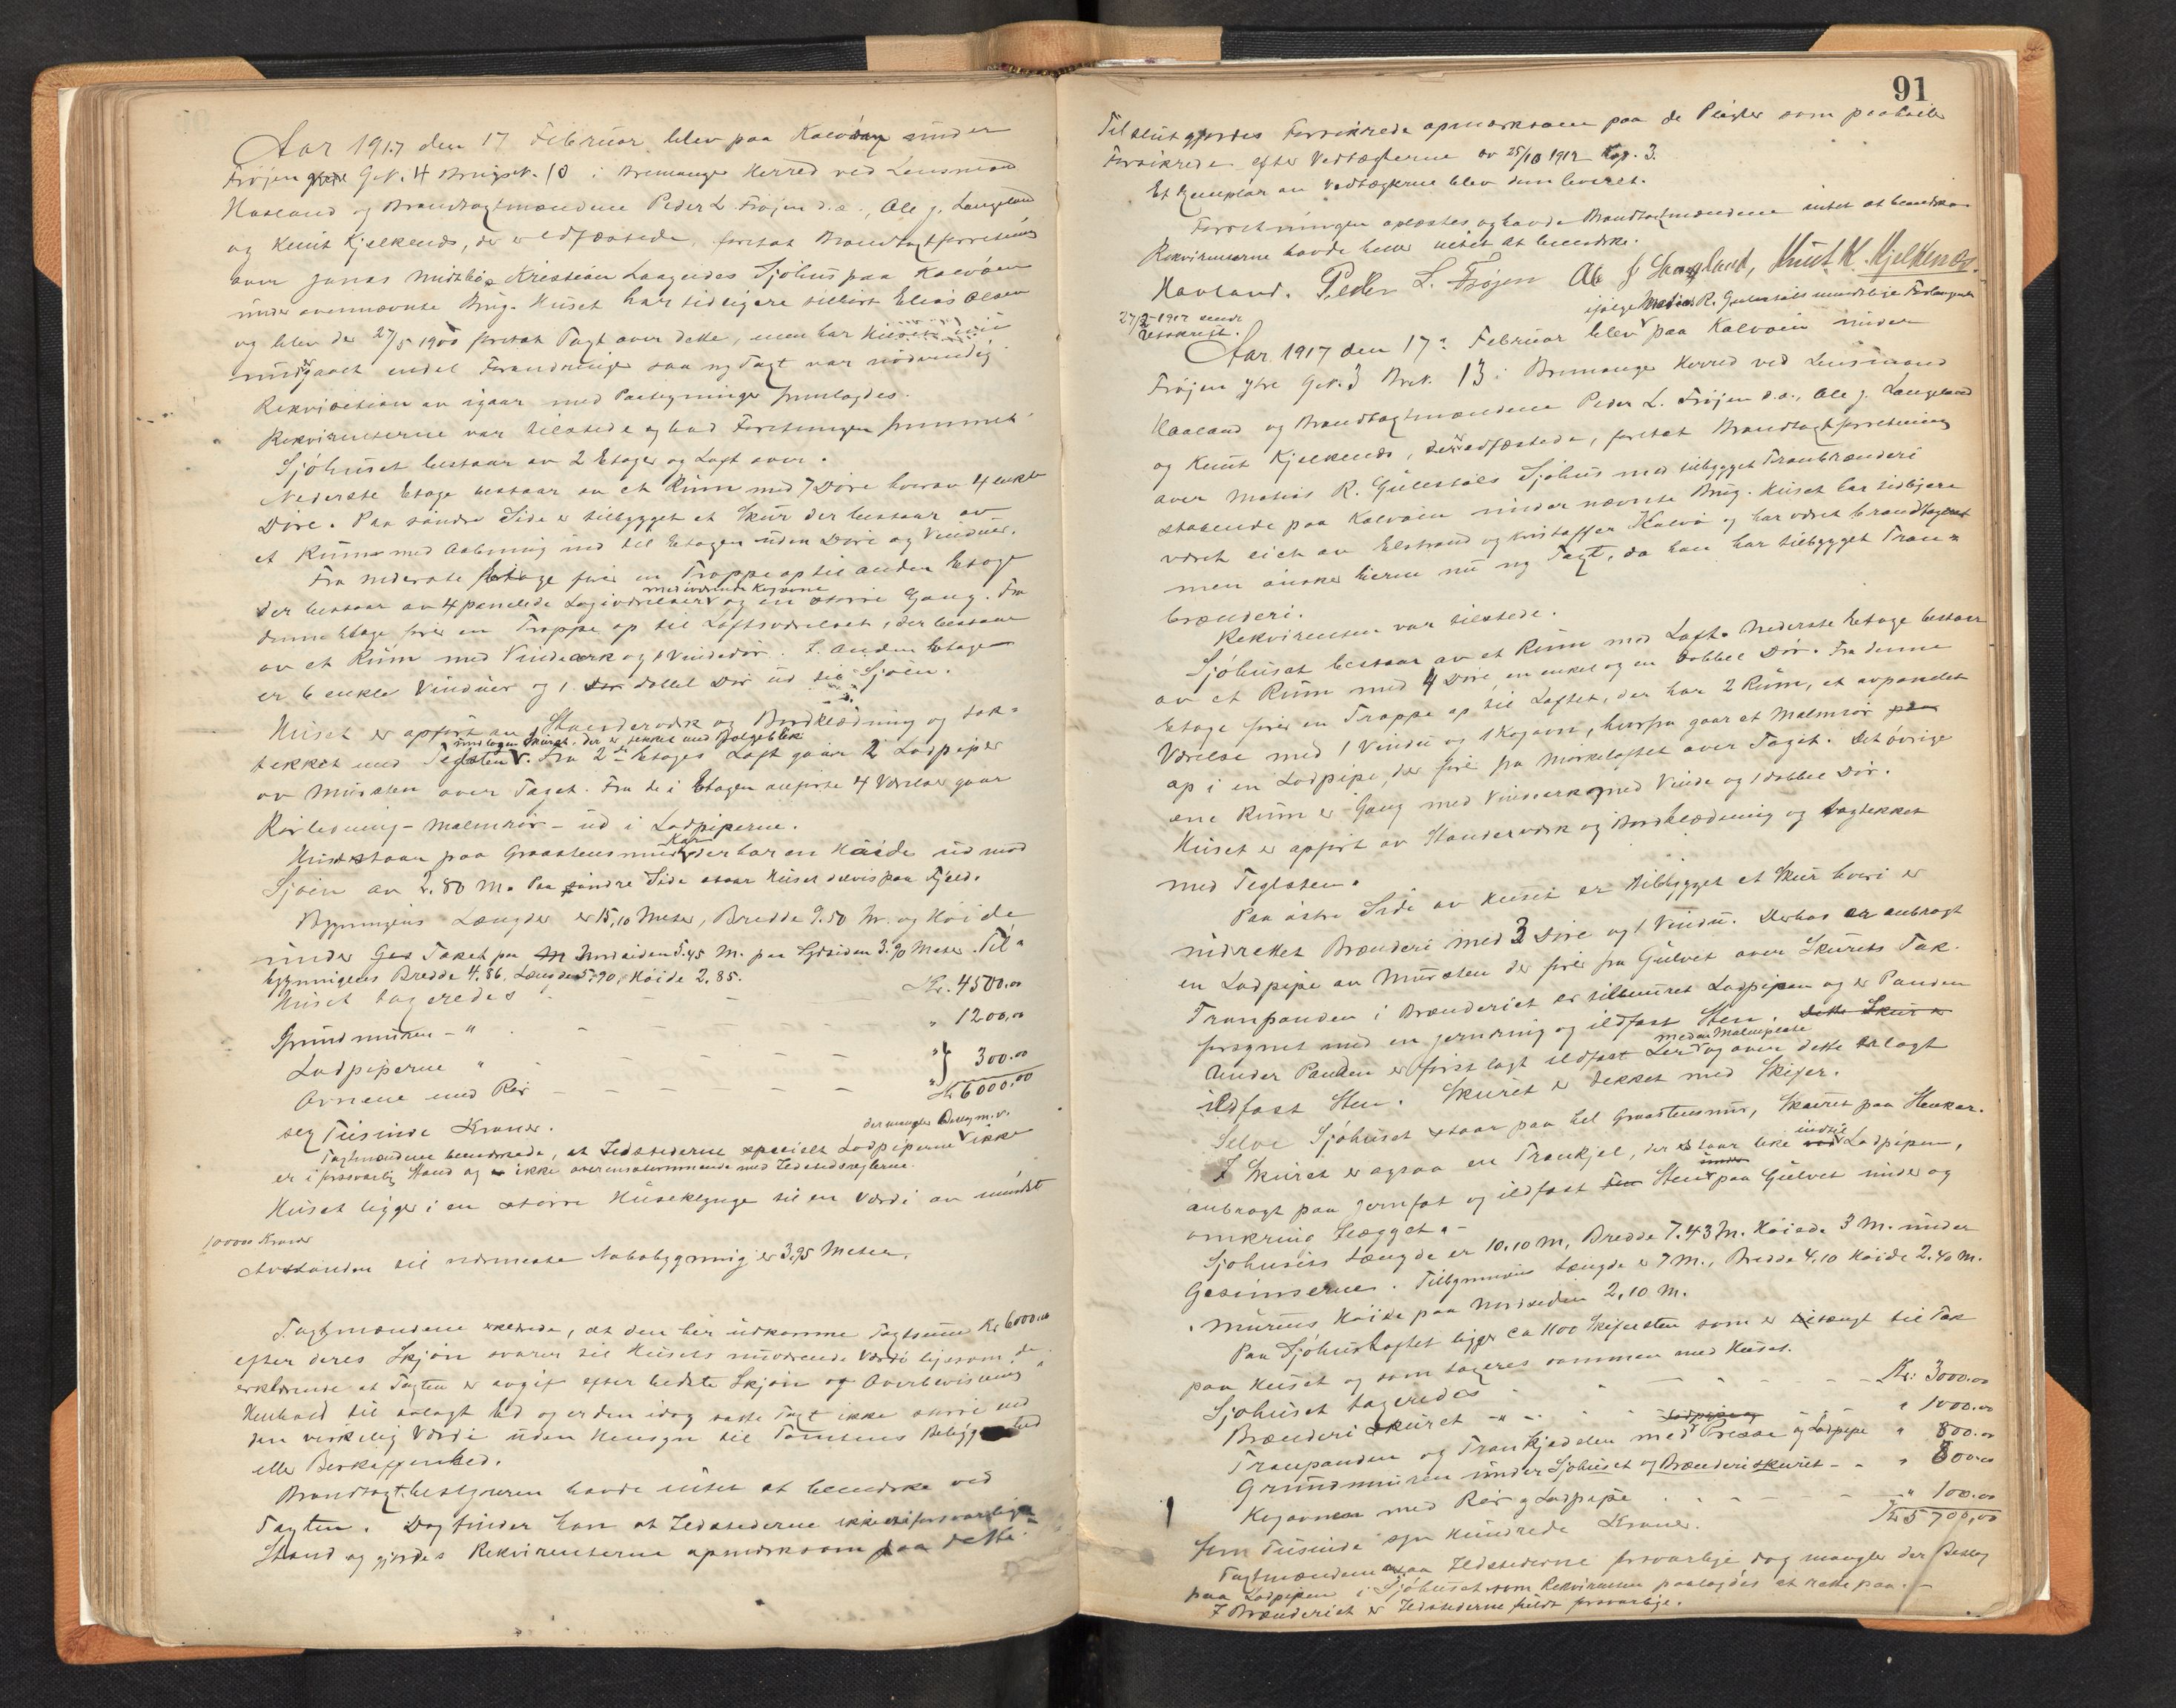 Aar 1917 den 17 Februar blev paa Kalvöen under
Frøjen Gr. N. 4 Brugsn. 10 i Bremanger Herred ved Lensmand
Haaland og Brandtagtmændene Peder L. Frøjen d.æ., Ole J. Langeland
og Knut Kjelkenes, der er edfæstede, foretat Brandtagtforretning
over Jonas Midtbø & Kristian Laageides Sjöhus paa Kalvöen
under ovennævnte Brug. Huset har tidligere tilhört Elias Olsen
og blev der 27/5 1900 foretat Tagt over dette, men har Huset
undergaaet endel Forandringer saa ny Tagt var nödvendig
Rekvisition av igaar med Paategninger fremlagdes.
Rekvirenterne var tilstede og bad Forretningen fremmet
Sjöhuset bestaar av 2 Etager og Loft over.
Nederste Etage bestaar av et Rum med 7 Döre hvorav 4 enkle
Döre. Paa söndre Side er tilbygget et Skur der bestaar av
et Rum med Aabning ind til Etagen uden Döre og Vinduer.
Fra nederste Etage förer en Trappe op til anden Etage
med iværende Kogovne
der bestaar av 4 panelede Logiværelser og en større Gang. Fra
denne Etage förer en Trappe op til Loftsværelset, der bestaar
av et Rum med Vindeark og 1 Vindedör. I anden Etage
er 6 enkle Vinduer og 1 Dör dobbel Dör ud til Sjöen.
Huset er opfört av Stenderverk og Bordklædning og tak-
undtagen Skuret, der er tekket med Bølgeblik
tekket med Teglsten. Fra 2den Etages Loft gaar 2 Ladpiper
av Mursten over Taget. Fra de i Etagen anförte 4 Værelser gaar
Rörledning - Malmrör - ud i Ladpiperne.
Kar
Huset staar paa Graastensmur der har en Höide ud mod
Sjöen av 2.80 M. Paa söndre Side staar Huset delvis paa Fjeld.
Bygningens Længde er 15,10 Meter, Bredde 9.50 M. og Höide
under Ges Taket paa Nordsiden 5.45 M. paa Sydsiden 3.90 Meter. Til-
bygningens Bredde 4.86, Længde 5.90, Höide 2.85.
Huset tageredes - - - Kr. 4500.00
Grundmuren - " - - " 1200.00
Ladpiperne " - - - - - "
Ovnene med Rör - - - - " } 300.00
Kr 6000.00
sex Tusinde Kroner.
der mangler Beslag m.v.
Tagtmændene bemerkede, at Ildstederne specielt Ladpiperne ikke
er i forsvarlig Stand og ikke overensstemmende med Ildstedsreglerne.
Huset ligger i en større Huseklynge til en Værdi av mindst
10000 Kroner
Avstanden til nærmeste Nabobygning er 3,95 Meter.
Tagtmændene erklærede, at den her utkomne Tagtsum Kr 6000.00
efter deres Skjön svarer til Husets nuværende Værdi ligesom de
erklærede at Tagten er avgit efter bedste Skjön og Overbevisning
Henhold til avlagt Ed og er den idag satte Tagt ikke større end
den virkelig Værdi uden Hensyn til Tomtens Beliggenhed
eller Beskaffenhed.
Brandtagtbestyreren havde intet at bemerke ved
Tagten. Dog finder han at Ildstederne ikke er i forsvarlig
Stand og gjordes Rekvirenterne opmerksom paa dette.
91
Til slut gjordes Forsikrede opmerksom paa de Pligter som paahviler
Forsikrede efter Vedtægterne av 25/10 1912 Kap. 3.
Et Exemplar av Vedtægterne blev dem leveret.
Forretningen oplæstes og havde Brandtagtmændene intet at bemerke
Rekvirenterne havde heller intet at bemerke.
Haaland. Peder L. Frøjen Ole J. Langeland, Knut K. Kjelkenæs.
27/2-1917 sendt
Utskrift.
ifølge Matias R. Gulestøls mundtlige Forlangende
Aar 1917 den 17de Februar blev paa Kalvöen under
Frøjen ytre Gr.N. 3 Br.N. 13 i Bremanger Herred ved Lensmand
Haaland og Brandtagtmændene Peder L. Frøjen d.æ., Ole J. Langeland
og Knut Kjelkenes, der er edfæstede, foretat Brandtagtforretning
over Matias R. Gulestöls Sjöhus med tilbygget Tranbrænderi
staaende paa Kalvöen under nævnte Brug. Huset har tidligere
været eiet av Elstrand og Kristoffer Kalvö og har været brandtageret
men önsker Eieren nu ny Tagt, da han har tilbygget Tran-
brænderi.
Rekvirenten var tilstede.
Sjöhuset bestaar av et Rum med Loft. Nederste Etage bestaar
av et Rum med 4 Döre, en enkel og en dobbel Dör. Fra denne
Etage förer en Trappe op til Loftet, der har 2 Rum, et avpanelet
Værelse med 1 Vindu og 1 Kogovn, hvorfra gaar et Malmrör paa
op i en Ladpipe, der förer fra Mörkeloftet over Taget. Det övrige
ene Rum er Gang med Vindeark med Vinde og 1 dobbel Dör.
Huset er opfört av Standerverk og Bordklædning og tagtekket
med Teglsten.
Paa östre Side av Huset er tilbygget et Skur hvori er
indrettet Brænderi med 3 Döre og 1 Vindu. Derhos er anbragt
en Ladpipe av Mursten der förer fra Gulvet over Skurets Tak.
Tranpanden i Brænderiet er tilmuret Ladpipen og er Panden
forsynet med en Jernring og ildfast Sten. Dette Skur er
med en Malmplate
Under Panden er först lagt ildfast Ler og over dette er lagt
ildfast Sten. Skuret er tekket med Skifer.
Selve Sjöhuset staar paa hel Graastensmur, Skuret paa Stenkar.
indtil
I Skuret er ogsaa en Trankjel, der staar like ved Ladpipen,
under
anbragt paa Jernfat og ildfast Sten paa Gulvet under og
omkring Ildegget.-
Sjöhusets Længde er 10.10 M, Bredde 7.43 M. Höiede 3 M. under
Gesimserne. Tilbygningens Længde er 7 M., Bredde 4.10 Höide 2.40 M.
Murens Höide paa Nordsiden 2,10 M.
Paa Sjöhusloftet ligger ca 1100 Skifersten som er tiltænkt til Tak
paa Huset og som tageres sammen med Huset.
Sjöhuset tageredes - - - - Kr: 3000.00
Brænderi skuret - " - - - " 1000.00
Ladpipe og
Tranpanden og Trankjedelen med Presse og Ladpipe " 800.00
Grundmuren under Sjöhuset og Brænderiskuret - - " 800.00
Kogovnen med Rör og Ladpipe - - - - " 100.00
Kr 5700,00
fem Tusinde syv Hundrede Kroner.
Tagtmændene saa Ildstederne forsvarlige dog mangler der Beslag
paa Ladpipen i Sjöhuset som Rekvirenten paalagdes at rette paa.-
I Brænderiet er Ildstederne fuldt forsvarlige.